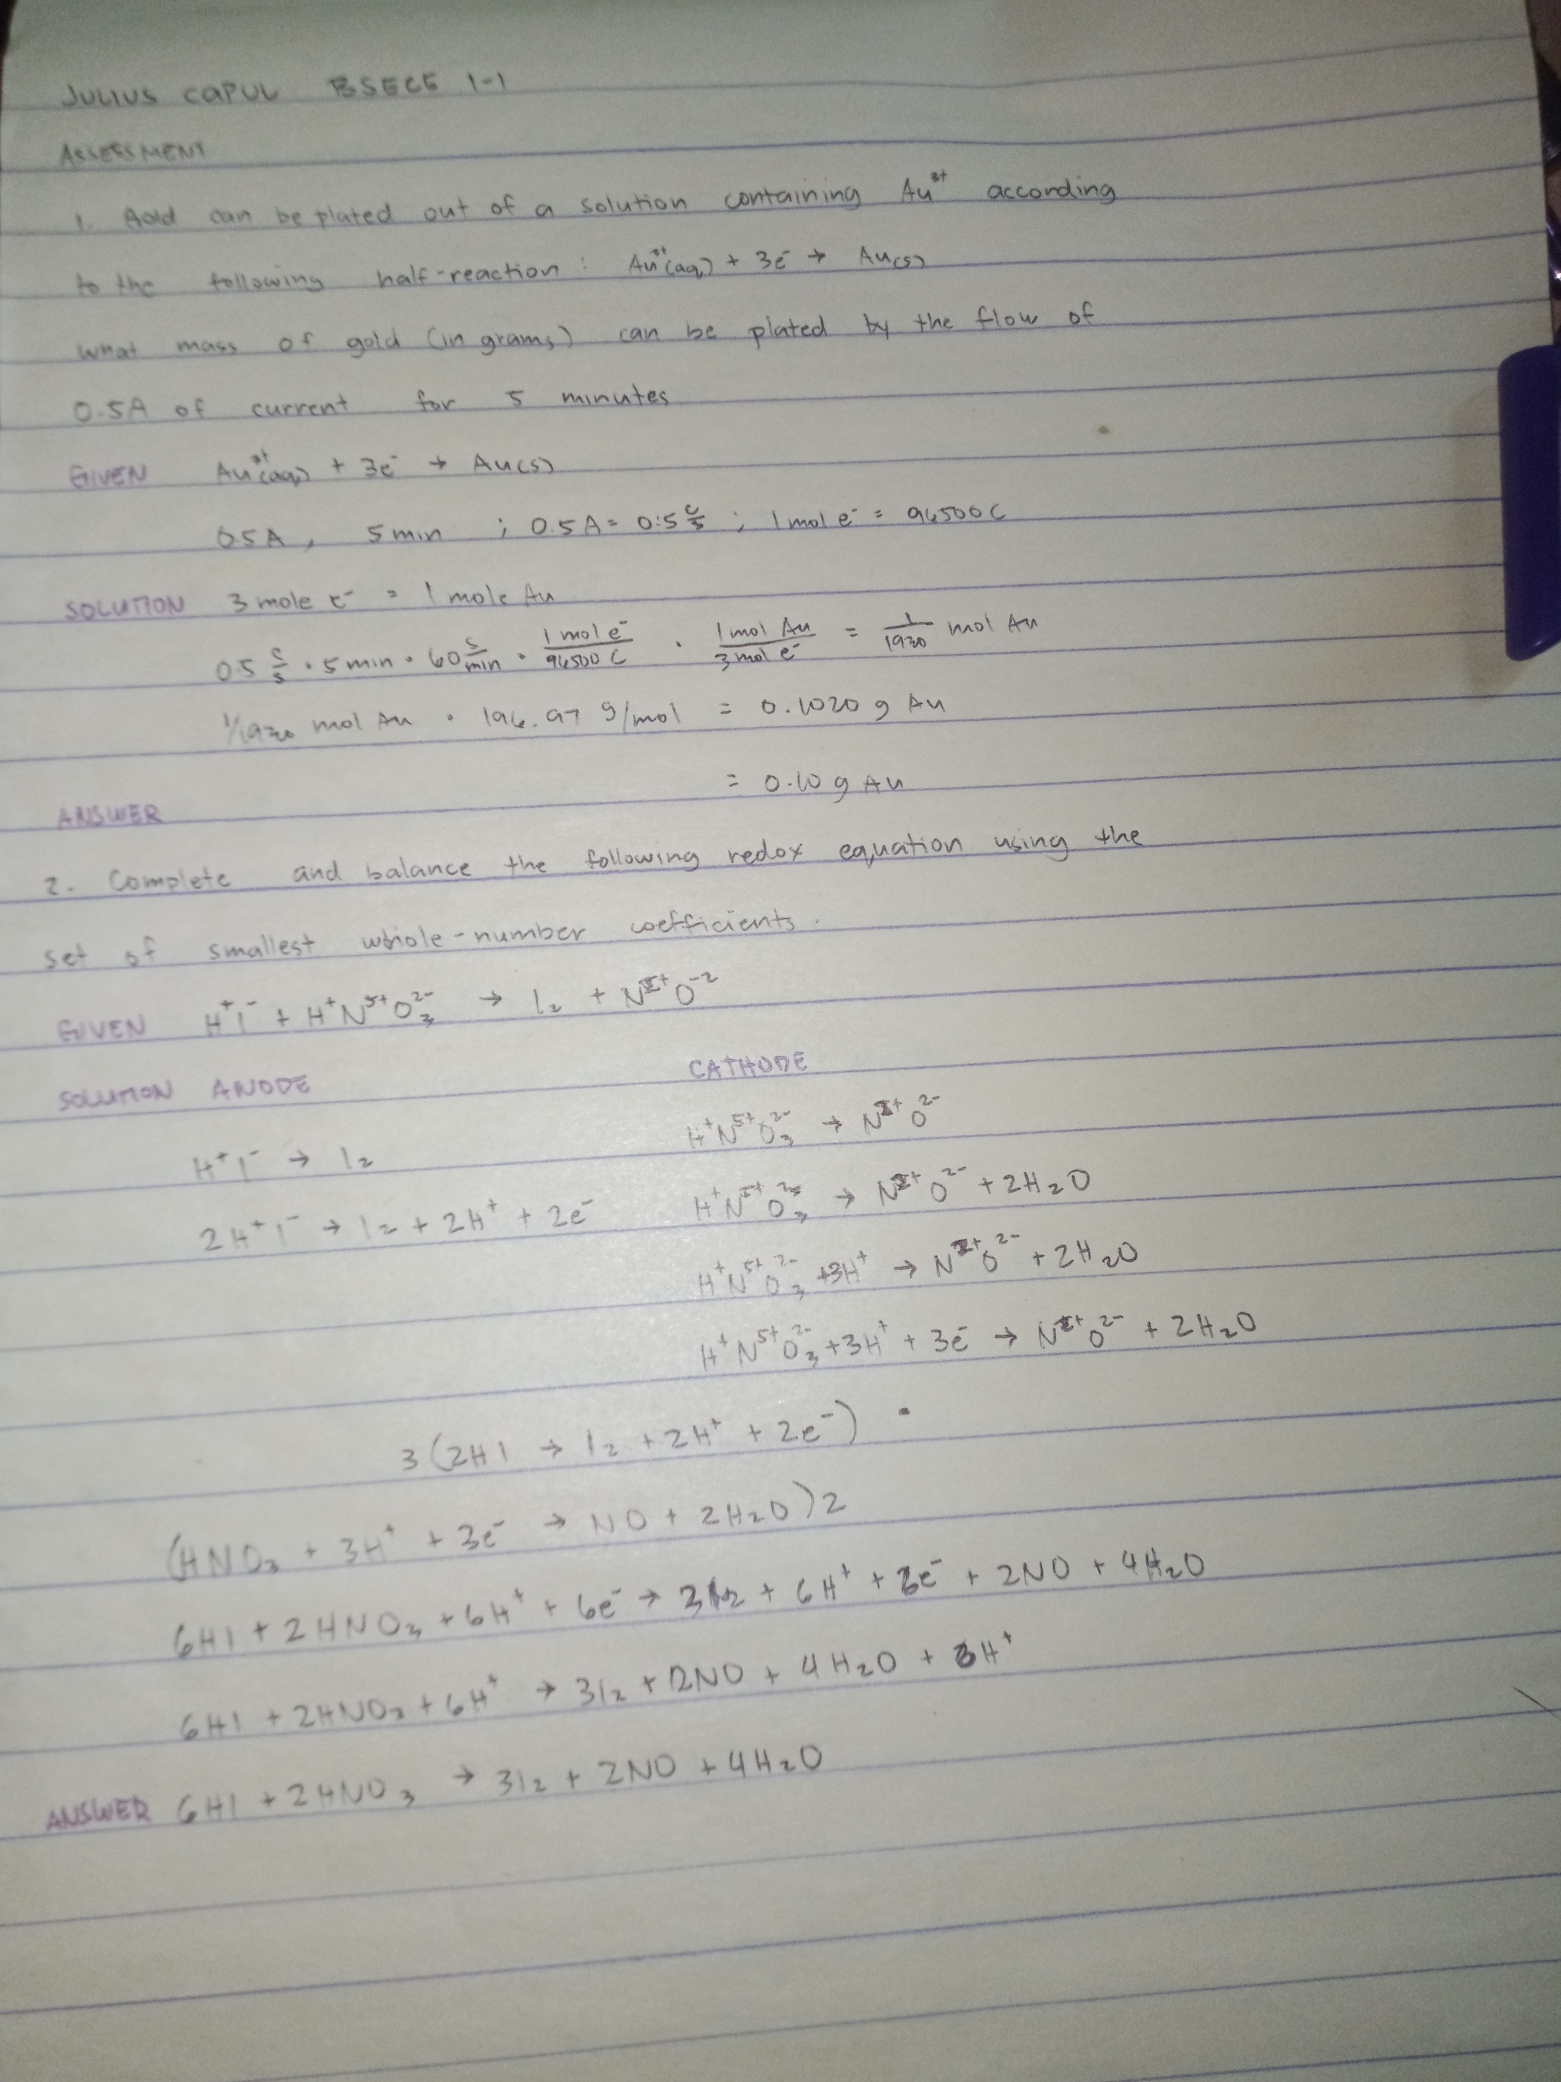 JULIUS CAPUL BSECE 1-1
ASSESSMENT
1. Gold can be plated out of a solution containing Au³⁺ according
to the following half-reaction : Au³⁺(aq) + 3e⁻ → Au(s)
what mass of gold (in grams) can be plated by the flow of
0.5A of current for 5 minutes
GIVEN Au³⁺(aq) + 3e⁻ → Au(s)
0.5A , 5 min ; 0.5A = 0.5 C/s ; 1 mol e⁻ = 96500C
SOLUTION 3 mole e⁻ = 1 mole Au
0.5 C/s · 5 min · 60 s/min · 1 mol e⁻/96500 C · 1 mol Au/3 mol e⁻ = 1/1930 mol Au
1/1930 mol Au · 196.97 g/mol = 0.1020 g Au
ANSWER = 0.10 g Au
2. Complete and balance the following redox equation using the
set of smallest whole-number coefficients.
GIVEN H⁺I⁻ + H⁺N⁵⁺O₃²⁻ → I₂ + N²⁺O⁻²
SOLUTION ANODE CATHODE
H⁺I⁻ → I₂ H⁺N⁵⁺O₃²⁻ → N²⁺O²⁻
2H⁺I⁻ → I₂ + 2H⁺ + 2e⁻ H⁺N⁵⁺O₃²⁻ → N²⁺O²⁻ + 2H₂O
H⁺N⁵⁺O₃²⁻ +3H⁺ → N²⁺O²⁻ + 2H₂O
H⁺N⁵⁺O₃²⁻ + 3H⁺ + 3e⁻ → N²⁺O²⁻ + 2H₂O
3 (2HI → I₂ + 2H⁺ + 2e⁻)
(HNO₃ + 3H⁺ + 3e⁻ → NO + 2H₂O) 2
6HI + 2HNO₃ + 6H⁺ + 6e⁻ → 3I₂ + 6H⁺ + 6e⁻ + 2NO + 4H₂O
6HI + 2HNO₃ + 6H⁺ → 3I₂ + 2NO + 4H₂O + 6H⁺
ANSWER 6HI + 2HNO₃ → 3I₂ + 2NO + 4H₂O